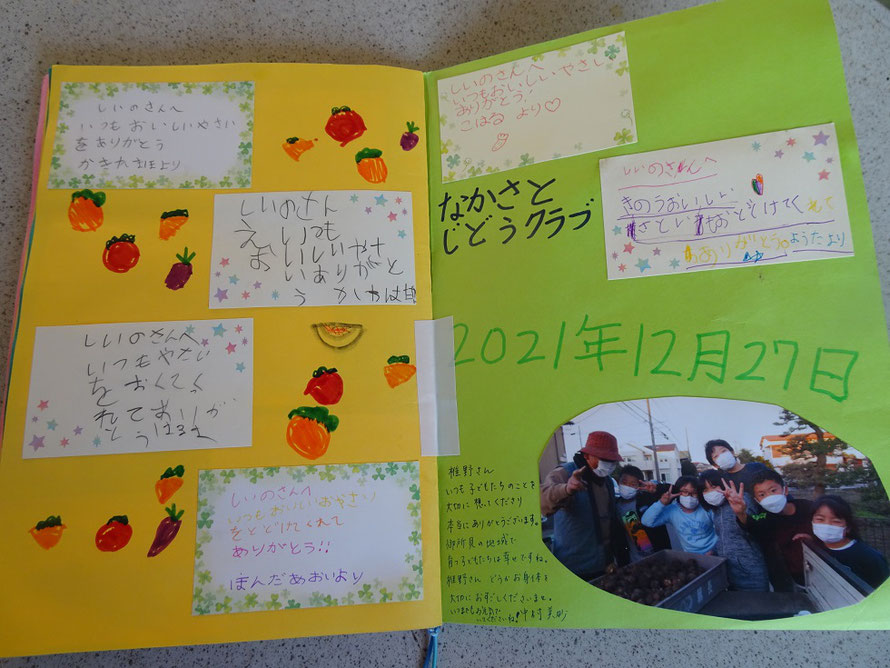 しいのさんへ
いつもおいしいやさい
をありがとう
より
しいのさん
え いつも
おいしいやさ
いありがと
う
しいのさんへ
いつもやさい
をおくてく
れてありが
とう
しいのさんへ
いつもおいしいおやさい
をとどけてくれて
ありがとう!!
ほんだあおいより
しいのさんへ
いつもおいしいやさい
ありがとう!
こはる より♡
なかさと
じどうクラブ
しいのさんへ
きのうおいしい
さといもおとどけてくれて
ありがとう。ようたより
2021年12月27日
椎野さん
いつも子どもたちのことを
大切に想ってくださり
本当にありがとうございます。
御所見の地域で
育つ子どもたちは幸せですね。
椎野さん どうかお身体を
大切にお過ごしくださいませ。
いつまでもお元気で
いてくださいね!